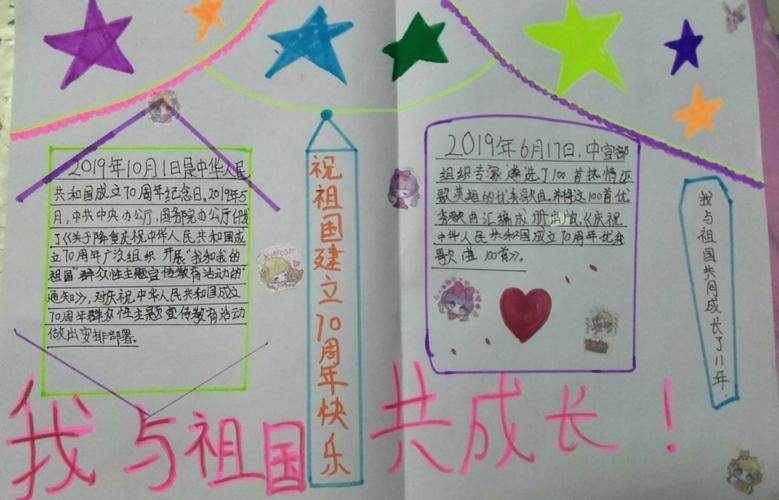 2019年10月1日是中华人民
共和国成立70周年纪念日。2019年5
月,中共中央办公厅,国务院办公厅印发
了《关于隆重庆祝中华人民共和国成
立70周年广泛组织开展"我和我的
祖国"群众性主题宣传教育活动的
通知》,对庆祝中华人民共和国成立
70周年群众性主题宣传教育活动
做出安排部署。
祝祖国建立70周年快乐
2019年6月17日,中宣部
组织专家遴选了100首热情讴
歌英雄的优秀歌曲,并将这100首优
秀歌曲汇编成册出版《庆祝
中华人民共和国成立70周年优秀
歌曲100首》。
我与祖国共同成长了11年
我与祖国共成长!